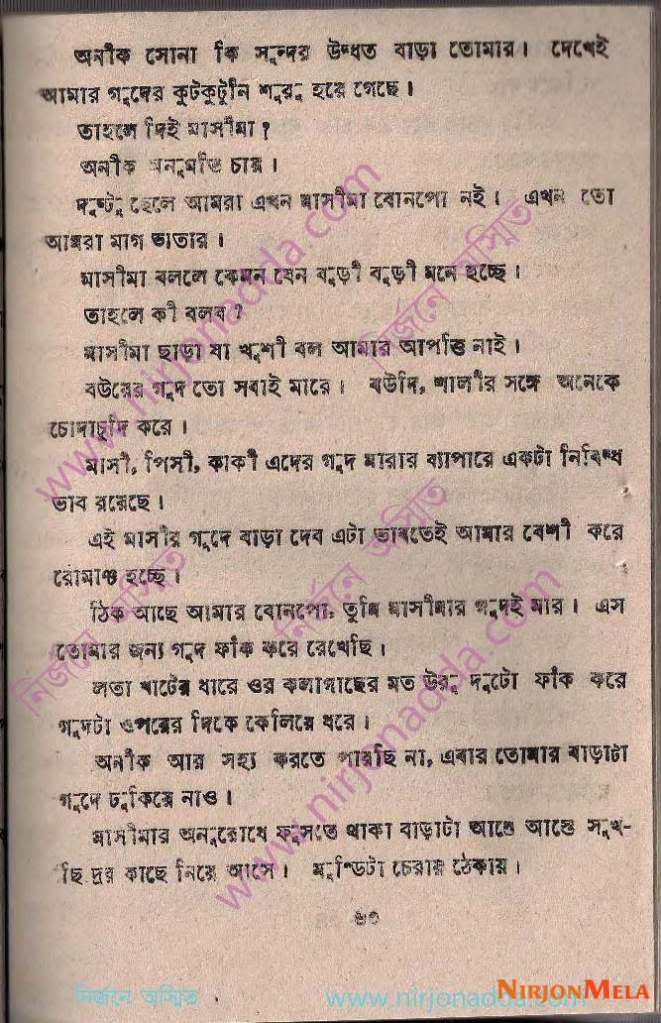 অনীক সোনা কি সুন্দর উদ্ধত বাড়া তোমার। দেখেই
আমার গুদের কুটকুটুনি শুরু হয়ে গেছে।
তাহলে দিই মাসীমা?
অনীক অনুমতি চায়।
দুষ্টু ছেলে আমরা এখন মাসীমা বোনপো নই। এখন তো
আমরা মাগ ভাতার।
মাসীমা বললে কেমন যেন বুড়ী বুড়ী মনে হচ্ছে।
তাহলে কী বলব?
মাসীমা ছাড়া যা খুশী বল আমার আপত্তি নাই।
বউয়ের গুদ তো সবাই মারে। বউদি, শালীর সঙ্গে অনেকে
চোদাচুদি করে।
মাসী, পিসী, কাকী এদের গুদ মারার ব্যাপারে একটা নিষিদ্ধ
ভাব রয়েছে।
এই মাসীর গুদে বাড়া দেব এটা ভাবতেই আমার বেশী করে
রোমাঞ্চ হচ্ছে।
ঠিক আছে আমার বোনপো, তুমি মাসীমার গুদই মার। এস
তোমার জন্য গুদ ফাঁক করে রেখেছি।
লতা খাটের ধারে ওর কলাগাছের মত উরু দুটো ফাঁক করে
গুদটা ওপরের দিকে কেলিয়ে ধরে।
অনীক আর সহ্য করতে পারছি না, এবার তোমার বাড়াটা
গুদে ঢুকিয়ে দাও।
মাসীমার অনুরোধে ফুঁসতে থাকা বাড়াটা আস্তে আস্তে সুখ-
ছিদ্রর কাছে নিয়ে আসে। মুণ্ডিটা চেরায় ঠেকায়।
www.nirjonadda.com
নির্জনে অস্মিত
নির্জনে অস্মিত
নির্জনে অস্মিত
www.nirjonadda.com
নির্জনে অস্মিত
www.nirjonadda.com
NIRJONMELA